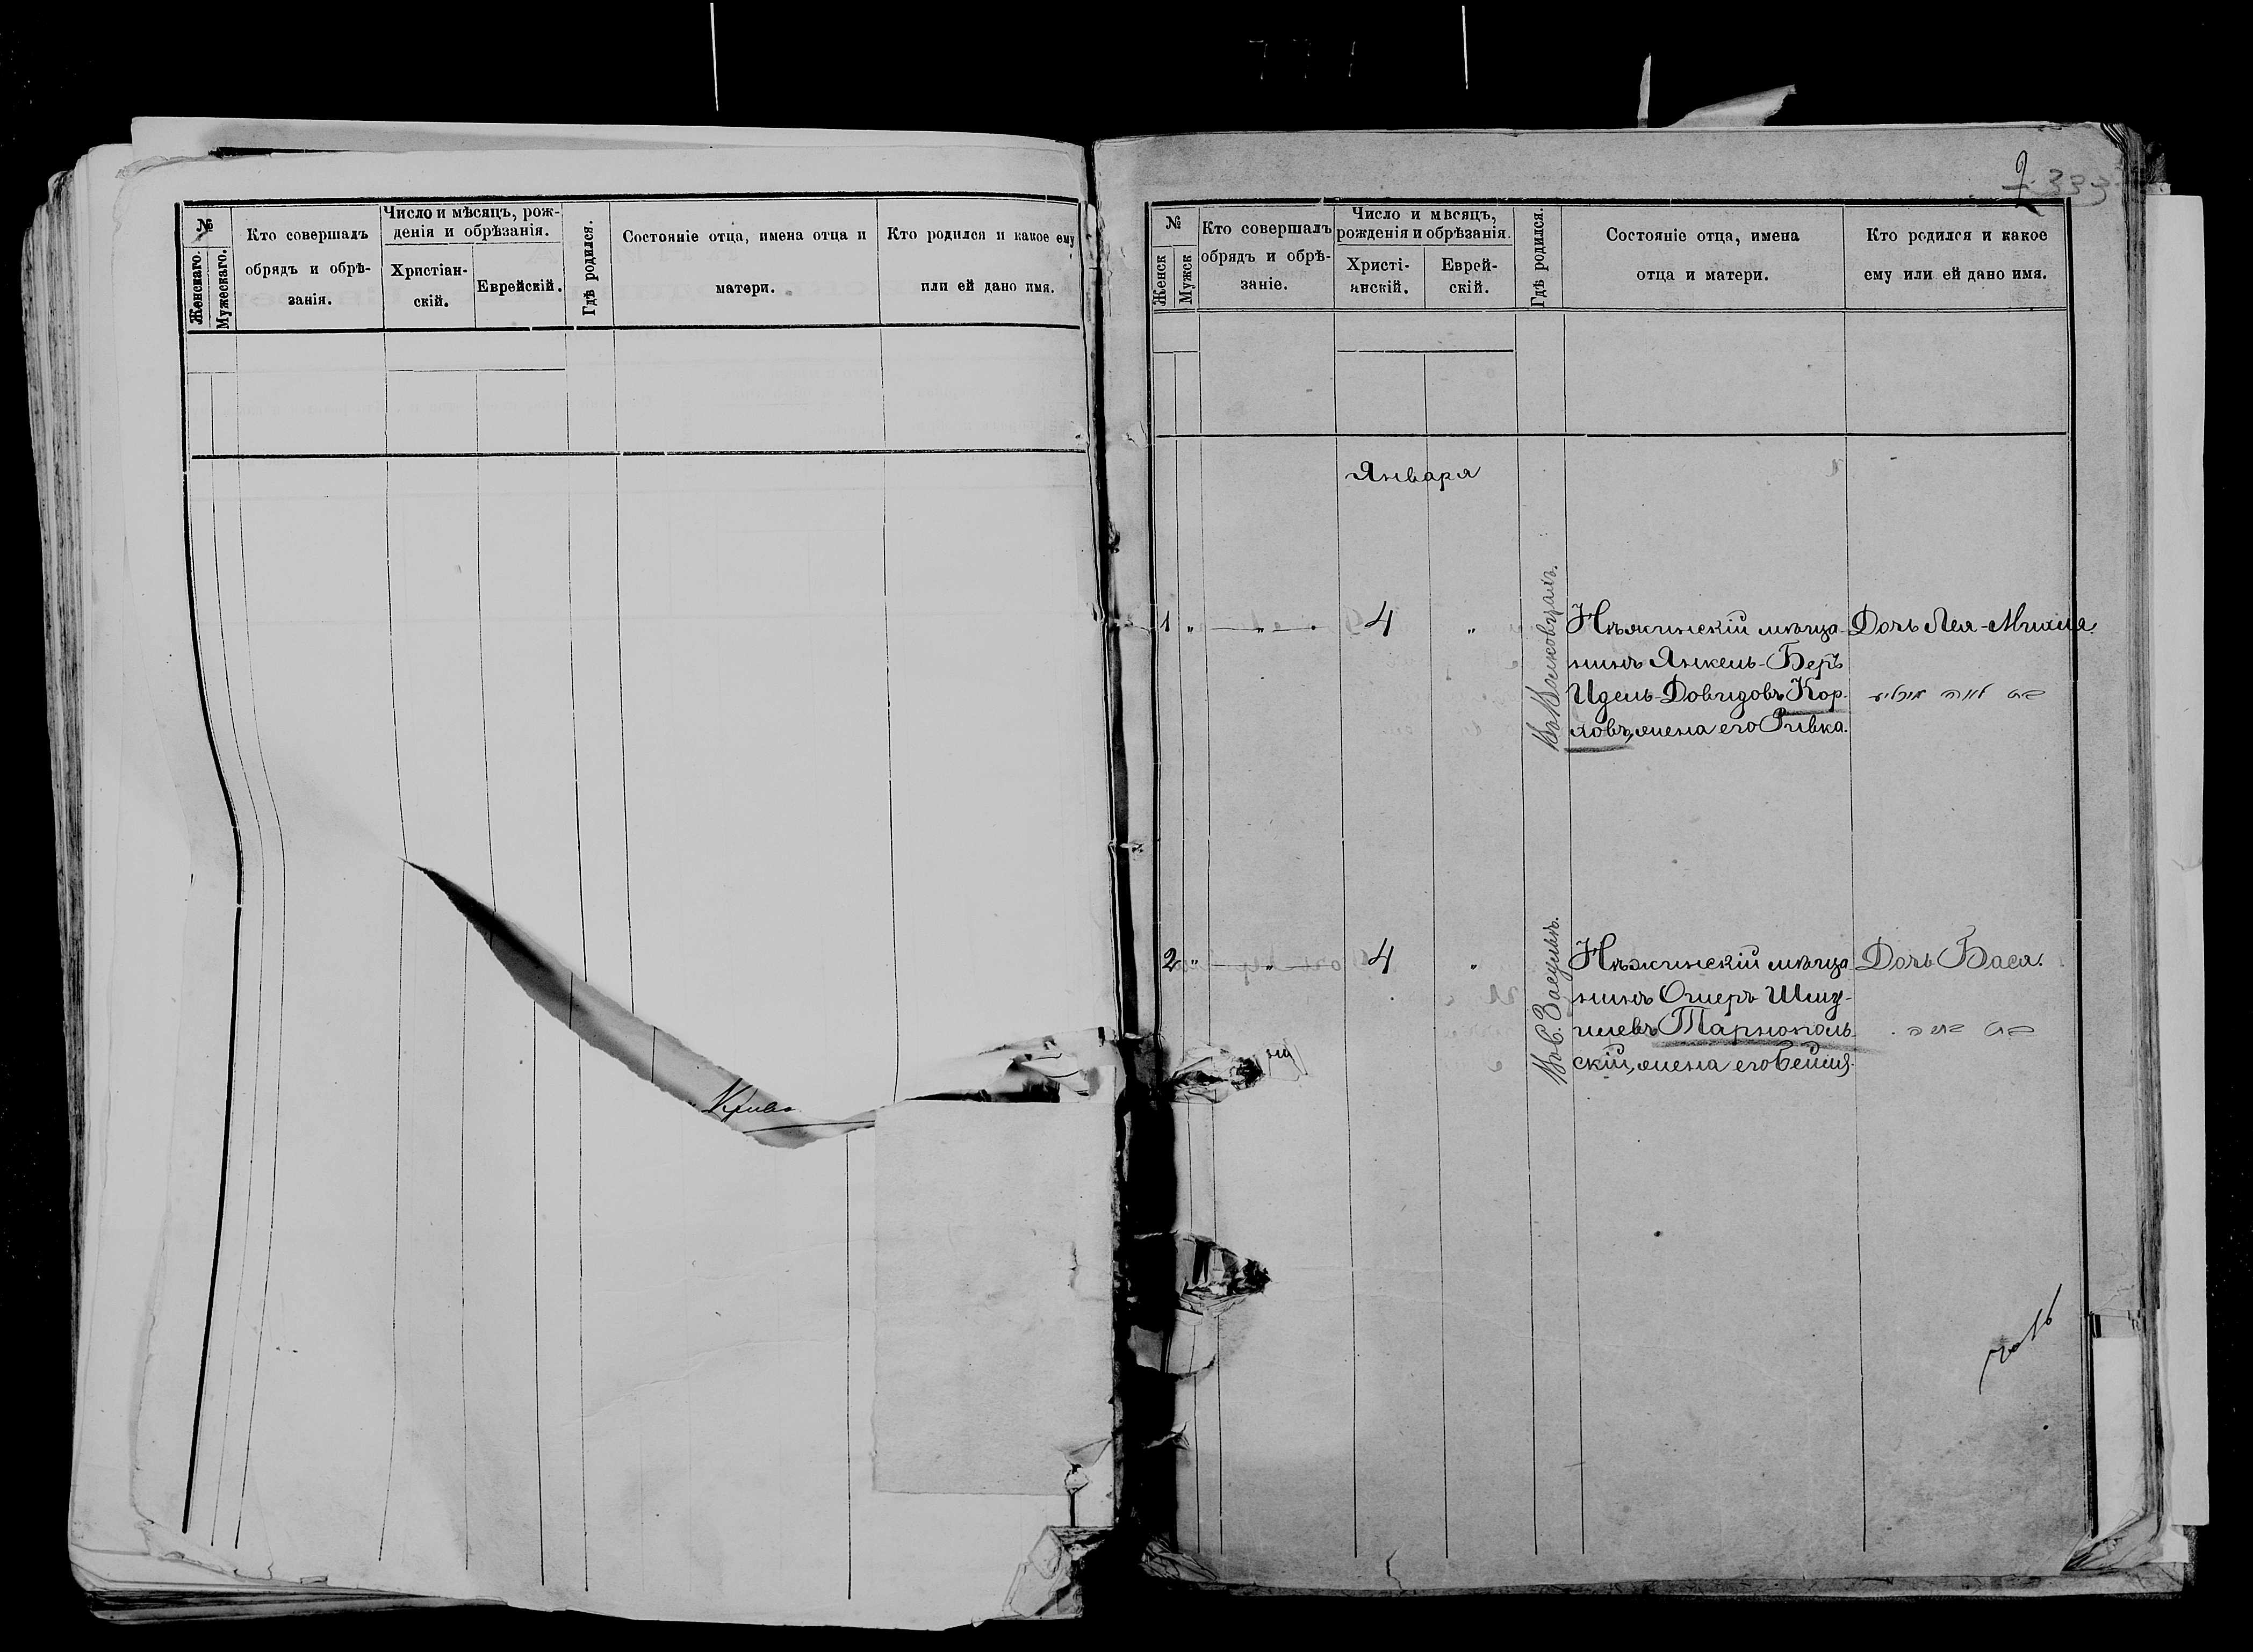 №
Женскаго.
Мужескаго.
Кто совершалъ
обрядъ и обрѣ-
занія.
Число и мѣсяцъ, рож-
денія и обрѣзанія.
Христіан-
скій.
Еврейскій.
Гдѣ родился.
Состояніе отца, имена отца и
матери.
Кто родился и какое ему
или ей дано имя.
2 333
№
Женск
Мужск
Кто совершалъ
обрядъ и обрѣ-
заніе.
Число и мѣсяцъ,
рожденія и обрѣзанія.
Христі-
анскій.
Еврей-
скій.
Гдѣ родился.
Состояніе отца, имена
отца и матери.
Кто родился и какое
ему или ей дано имя.
Января
1 " — " — 4 "
Нѣжинскій мѣща-
нинъ Янкель-Беръ
Идель-Довидовъ Кор-
ловъ, жена его Ривка.
Дочь Лея-Михля.
2 " — " — 4 "
Въ С.
Нѣжинскій мѣща-
нинъ Ошеръ Шму-
илевъ Тарнополь-
скій, жена его Бейля.
Дочь Бася.